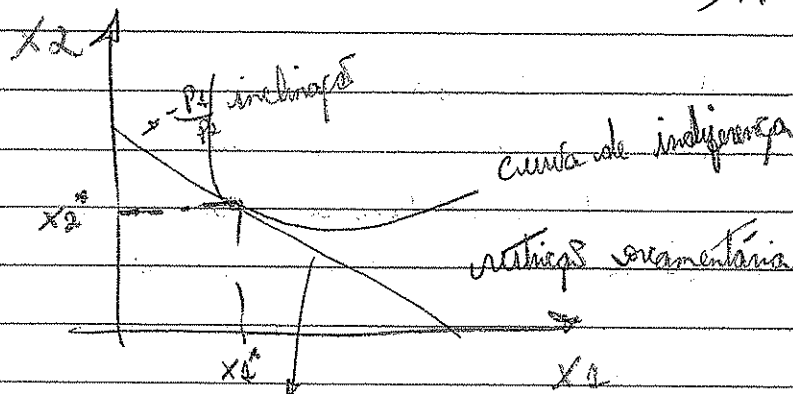 X2
-P1/P2 inclinação
curva de indiferença
X2*
restrição orçamentária
X1*
X1